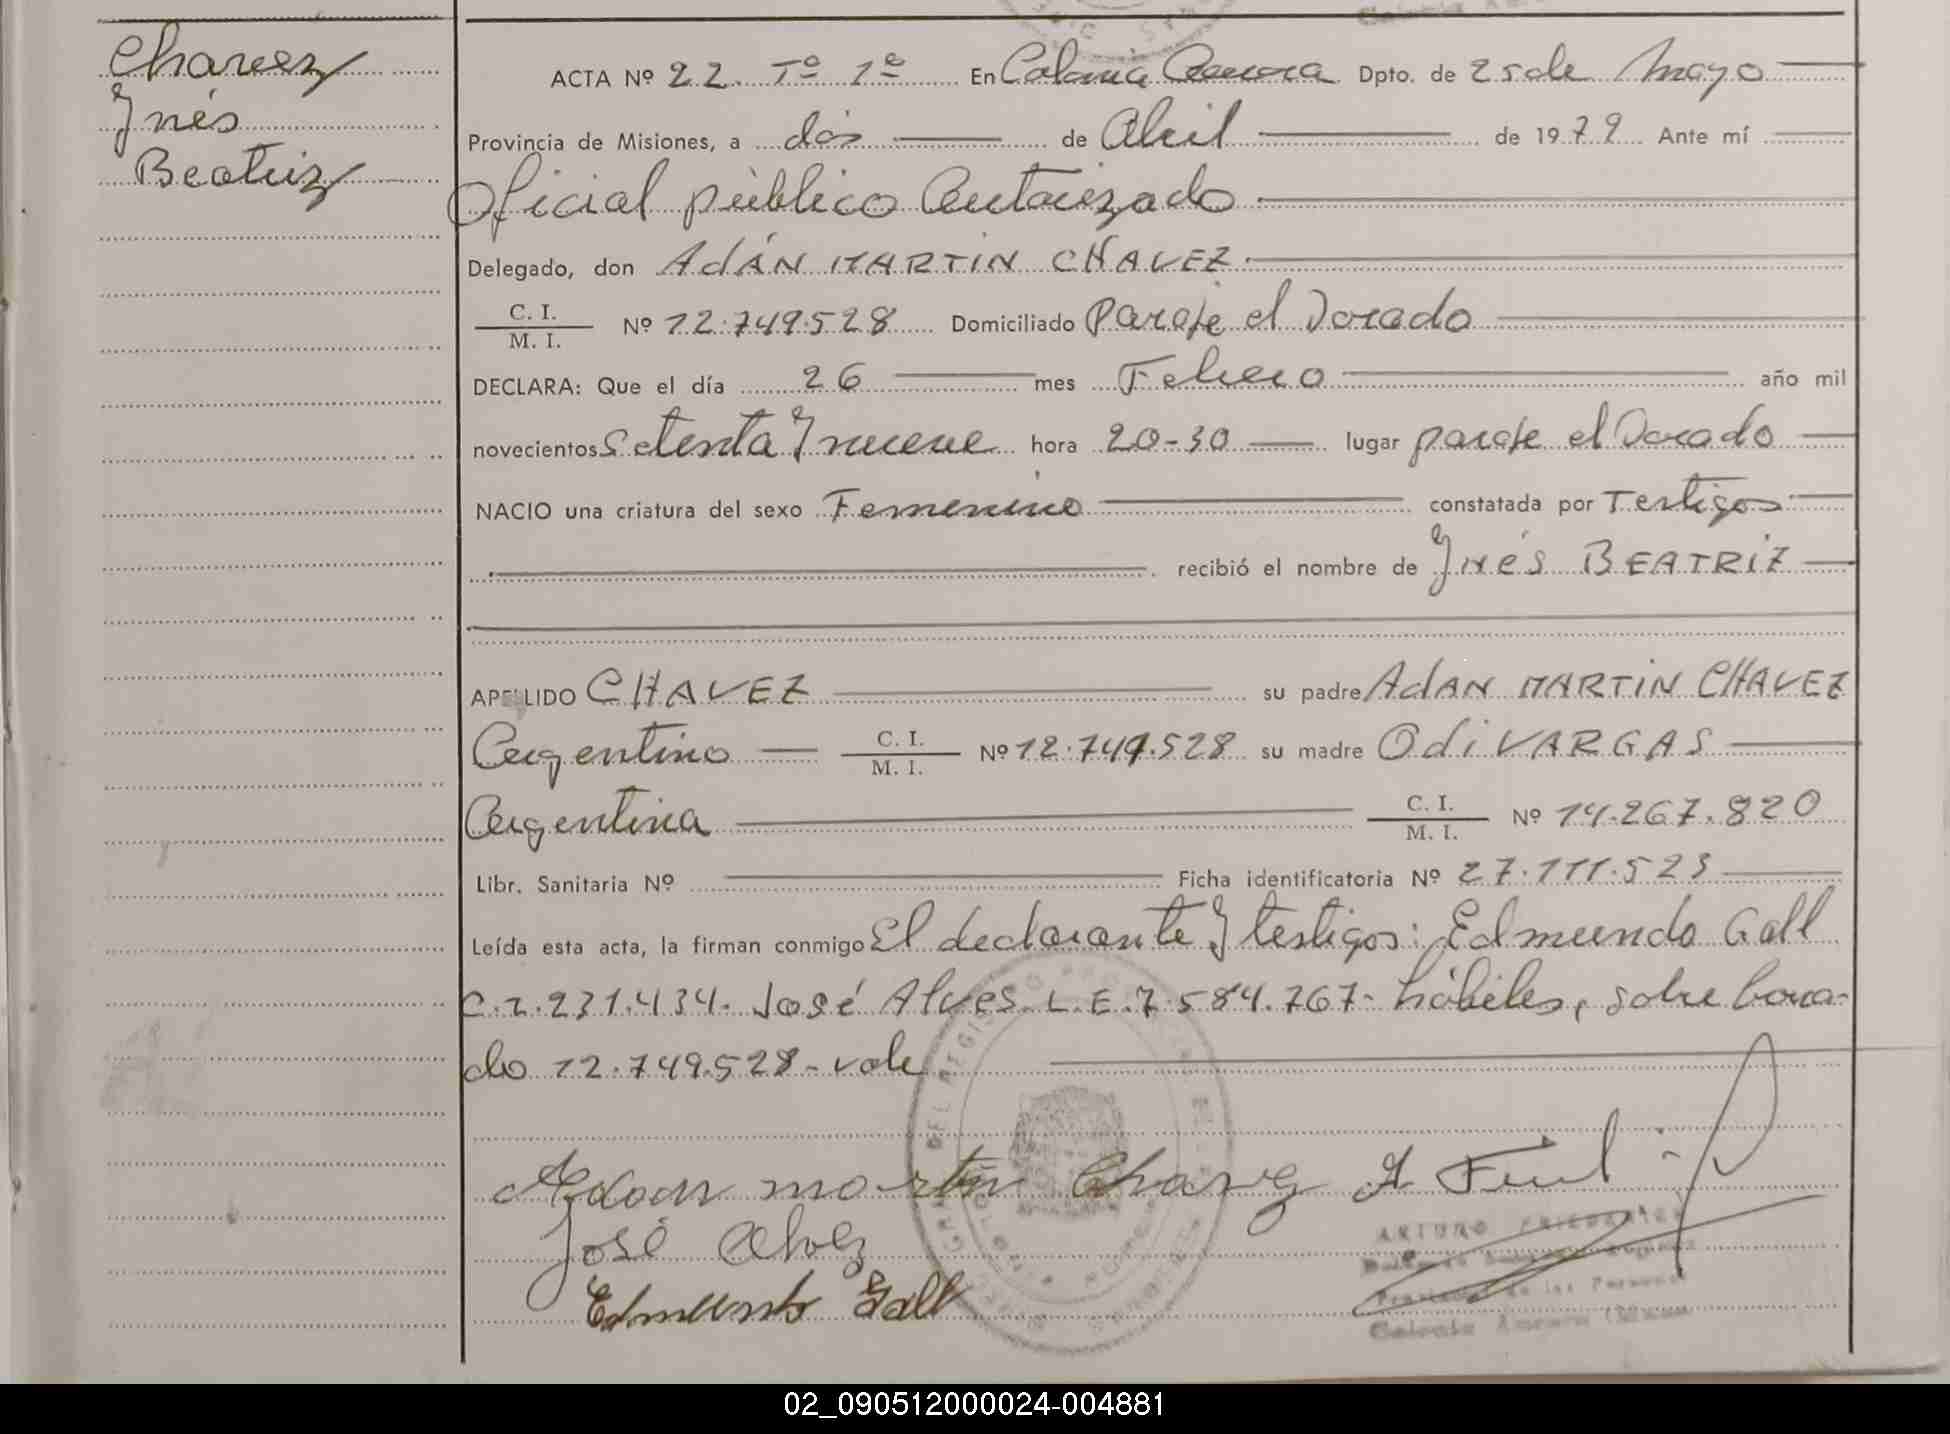 Chavez
Ynés
Beatriz
ACTA Nº 22. Tº 1º En Colonia Aurora Dpto. de 25 de Mayo
Provincia de Misiones, a dos de Abril de 1979 Ante mí
Oficial público Autorizado
Delegado, don AdÁN MARTIN CHAVEZ
C. I.
M. I. Nº 12.749.528 Domiciliado Paraje el Dorado
DECLARA: Que el día 26 mes Febrero año mil
novecientos setenta y nueve hora 20-30 lugar paraje el Dorado
NACIO una criatura del sexo Femenino constatada por Testigos
recibió el nombre de Ynés BEATRIZ
APELLIDO CHAVEZ su padre AdAN MARTIN CHAVEZ
Argentino C. I. M. I. Nº 12.749.528 su madre Odi VARGAS
Argentina C. I. M. I. Nº 14.267.820
Libr. Sanitaria Nº Ficha identificatoria Nº 27.111.523
Leída esta acta, la firman conmigo El declarante y testigos: Edmundo Gall
C.I. 231.434. José Alves L.E. 7.584.767- hábiles, sobre borra-
do 12.749.528 - vale
Adan martin Chavez
José Alvez
Edmundo Gall
ARTURO
Colonia Aurora
02_090512000024-004881